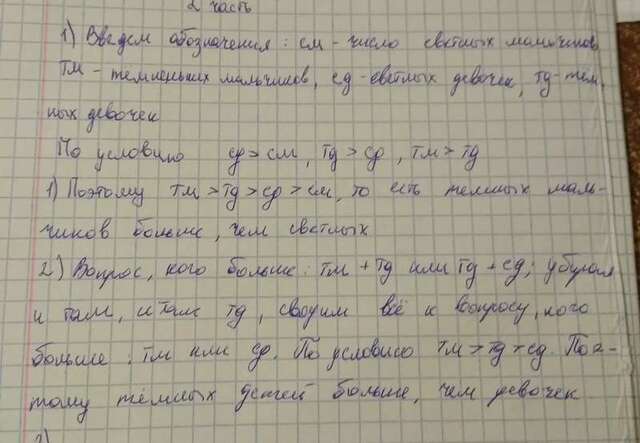 2 часть
1) Введем обозначения: см - число светлых мальчиков
тм - темненьких мальчиков, сд - светлых девочек, тд - тём
ных девочек
По условию сд > см, тд > сд, тм > тд
1) Поэтому тм > тд > сд > см, то есть темных маль-
чиков больше, чем светлых
2) Вопрос, кого больше: тм + тд или тд + сд; убирая
и там, и там тд, сводим всё к вопросу, кого
больше: тм или сд. По условию тм > тд > сд. Поэ-
тому тёмных детей больше, чем девочек